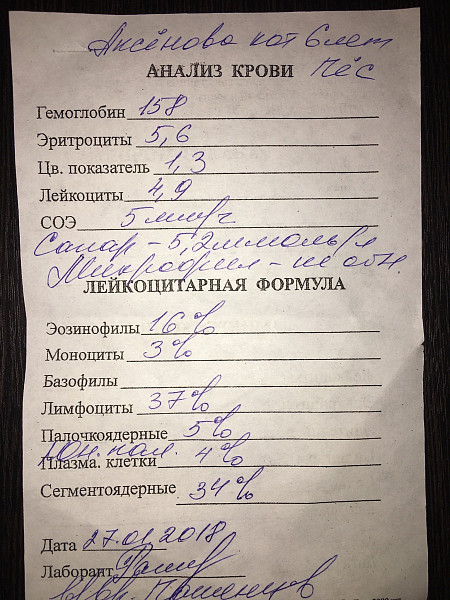 Аксёнова кот 6 лет
АНАЛИЗ КРОВИ Пёс
Гемоглобин 158
Эритроциты 5,6
Цв. показатель 1,3
Лейкоциты 4,9
СОЭ 5 мм/ч
Сахар - 5,2 ммоль/л
Микрофил - не обн.
ЛЕЙКОЦИТАРНАЯ ФОРМУЛА
Эозинофилы 16%
Моноциты 3%
Базофилы
Лимфоциты 37%
Палочкоядерные 5%
Юн. пал.
Плазма. клетки 4%
Сегментоядерные 34%
Дата 27.01.2018
Лаборант